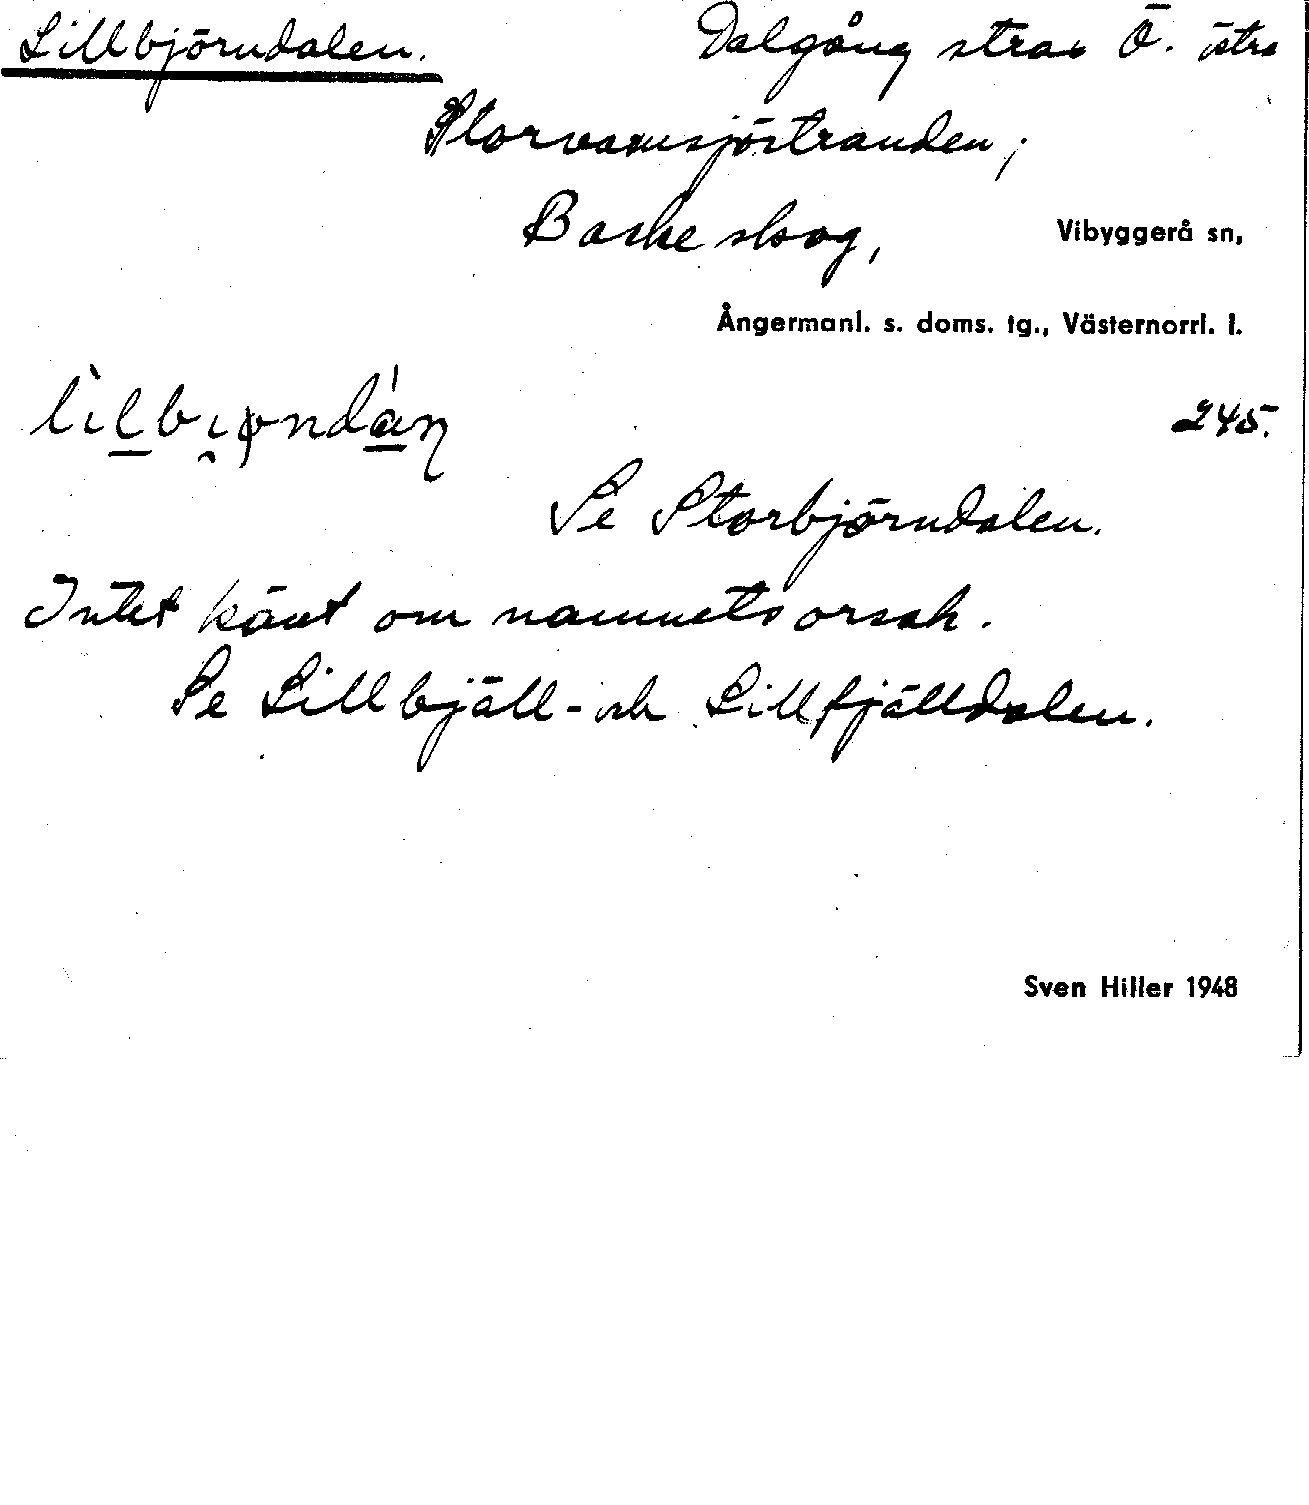 Lillbjörndalen. Dalgång strax Ö. östra
Storvamsjöstranden;
Baskeskog, Vibyggerå sn,
Ångermanl. s. doms. tg., Västernorrl. l.
245.
Se Storbjörndalen.
Intet känt om namnets orsak.
Se Lillbjäll- och Lillfjälldalen.
Sven Hiller 1948